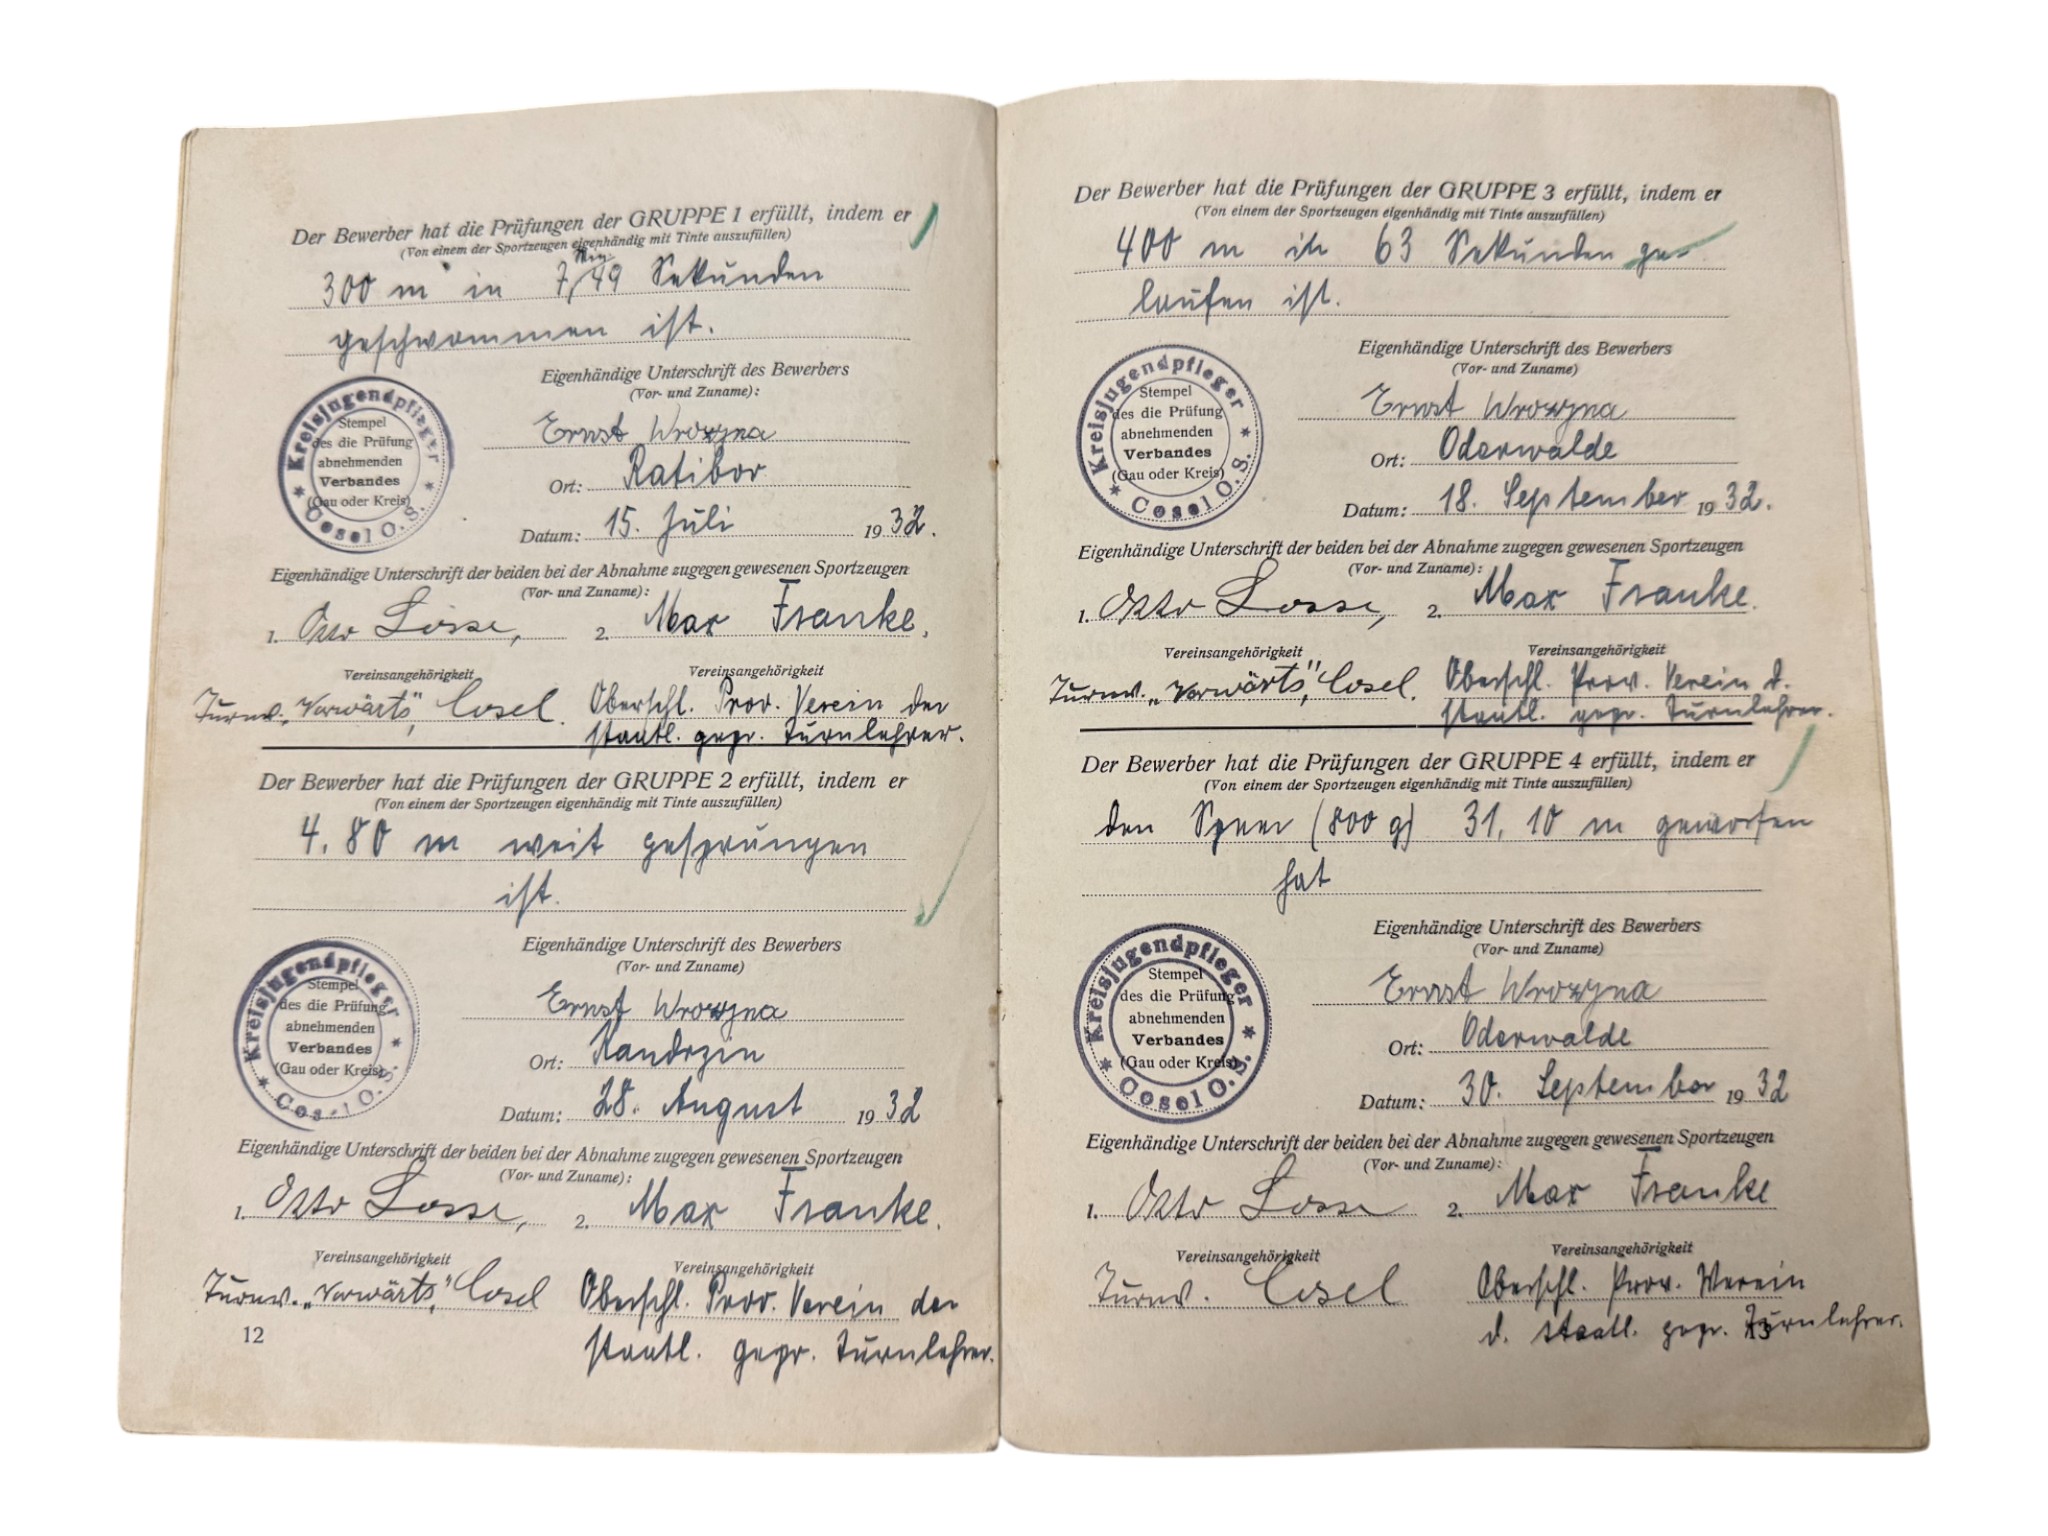 Der Bewerber hat die Prüfungen der GRUPPE 1 erfüllt, indem er
(Von einem der Sportzeugen eigenhändig mit Tinte auszufüllen)
Min.
300 m in 7, 49 Sekunden
geschwommen ist.
Eigenhändige Unterschrift des Bewerbers
(Vor- und Zuname):
Kreisjugendpfleger
* Cosel O.S. *
Stempel
des die Prüfung
abnehmenden
Verbandes
(Gau oder Kreis)
Ernst Wrozyna
Ort: Ratibor
Datum: 15. Juli 1932.
Eigenhändige Unterschrift der beiden bei der Abnahme zugegen gewesenen Sportzeugen
(Vor- und Zuname):
1. Otto Losse, 2. Max Franke,
Vereinsangehörigkeit Vereinsangehörigkeit
Turnv. „Vorwärts", Cosel. Oberschl. Prov. Verein der
staatl. gepr. Turnlehrer.
Der Bewerber hat die Prüfungen der GRUPPE 2 erfüllt, indem er
(Von einem der Sportzeugen eigenhändig mit Tinte auszufüllen)
4.80 m weit gesprungen
ist.
Eigenhändige Unterschrift des Bewerbers
(Vor- und Zuname)
Kreisjugendpfleger
* Cosel O.S. *
Stempel
des die Prüfung
abnehmenden
Verbandes
(Gau oder Kreis)
Ernst Wrozyna
Ort: Kandrzin
Datum: 28. August 1932
Eigenhändige Unterschrift der beiden bei der Abnahme zugegen gewesenen Sportzeugen
(Vor- und Zuname):
1. Otto Losse, 2. Max Franke.
Vereinsangehörigkeit Vereinsangehörigkeit
Turnv. „Vorwärts", Cosel Oberschl. Prov. Verein der
staatl. gepr. Turnlehrer.
12
Der Bewerber hat die Prüfungen der GRUPPE 3 erfüllt, indem er
(Von einem der Sportzeugen eigenhändig mit Tinte auszufüllen)
400 m in 63 Sekunden ge-
laufen ist.
Eigenhändige Unterschrift des Bewerbers
(Vor- und Zuname)
Kreisjugendpfleger
* Cosel O.S. *
Stempel
des die Prüfung
abnehmenden
Verbandes
(Gau oder Kreis)
Ernst Wrozyna
Ort: Oderwalde
Datum: 18. September 1932.
Eigenhändige Unterschrift der beiden bei der Abnahme zugegen gewesenen Sportzeugen
(Vor- und Zuname):
1. Otto Losse, 2. Max Franke.
Vereinsangehörigkeit Vereinsangehörigkeit
Turnv. „Vorwärts", Cosel. Oberschl. Prov. Verein d.
staatl. gepr. Turnlehrer.
Der Bewerber hat die Prüfungen der GRUPPE 4 erfüllt, indem er
(Von einem der Sportzeugen eigenhändig mit Tinte auszufüllen)
den Speer (800 g) 31,10 m geworfen
hat
Eigenhändige Unterschrift des Bewerbers
(Vor- und Zuname)
Kreisjugendpfleger
* Cosel O.S. *
Stempel
des die Prüfung
abnehmenden
Verbandes
(Gau oder Kreis)
Ernst Wrozyna
Ort: Oderwalde
Datum: 30. September 1932
Eigenhändige Unterschrift der beiden bei der Abnahme zugegen gewesenen Sportzeugen
(Vor- und Zuname):
1. Otto Losse 2. Max Franke
Vereinsangehörigkeit Vereinsangehörigkeit
Turnv. Cosel Oberschl. Prov. Verein
d. staatl. gepr. Turnlehrer.
13